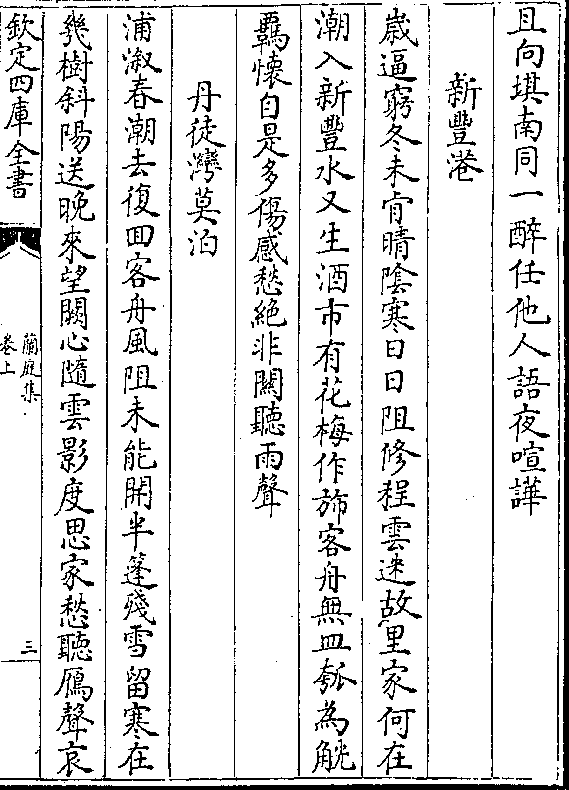 且向堪南同一醉任他人語夜喧譁
新豐港
嵗逼窮冬未肯晴隂寒日日阻修程雲迷故里家何在
潮入新豐水又生酒市有花梅作旆客舟無皿瓠為觥
羇懷自是多傷感愁絶非關聽雨聲
丹徒灣莫泊
浦溆春潮去復回客舟風阻未能開半篷殘雪留寒在
幾樹斜陽送晚來望闕心隨雲影度思家愁聽鴈聲哀
欽定四庫全書
蘭庭集
卷上
三